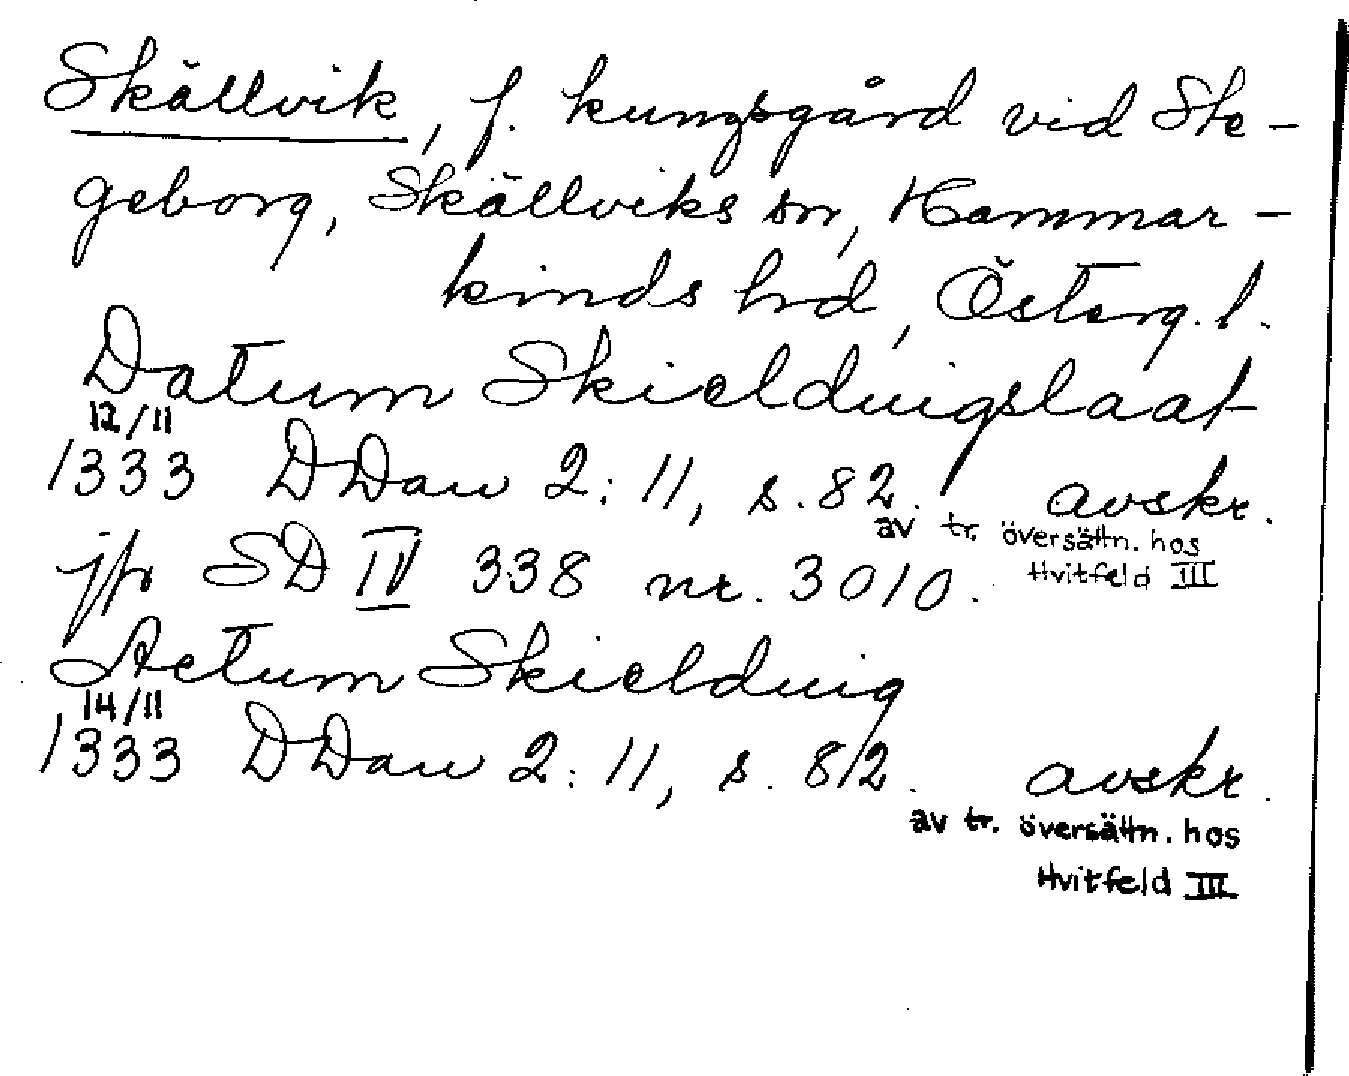 Skällvik, f. kungsgård vid Ste-
geborg, Skällviks sn, Hammar-
kinds hrd, Österg. l.
Datum Skielduigslaat
12/11
1333 DDan 2:11, s. 82. avskr.
av tr. översättn. hos
Hvitfeld III
jfr SD IV 338 nr. 3010.
Actum Skielduig
14/11
1333 DDan 2:11, s. 82. avskr.
av tr. översättn. hos
Hvitfeld III